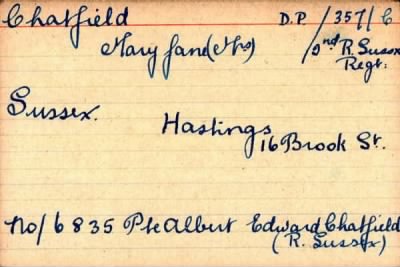 Chatfield D.P. /357/C
Mary Jane (Mrs) /2nd R. Sussx
Regt.
Sussex.
Hastings
16 Brook St.
No/6835 Pte Albert Edward Chatfield
(R. Sussex)